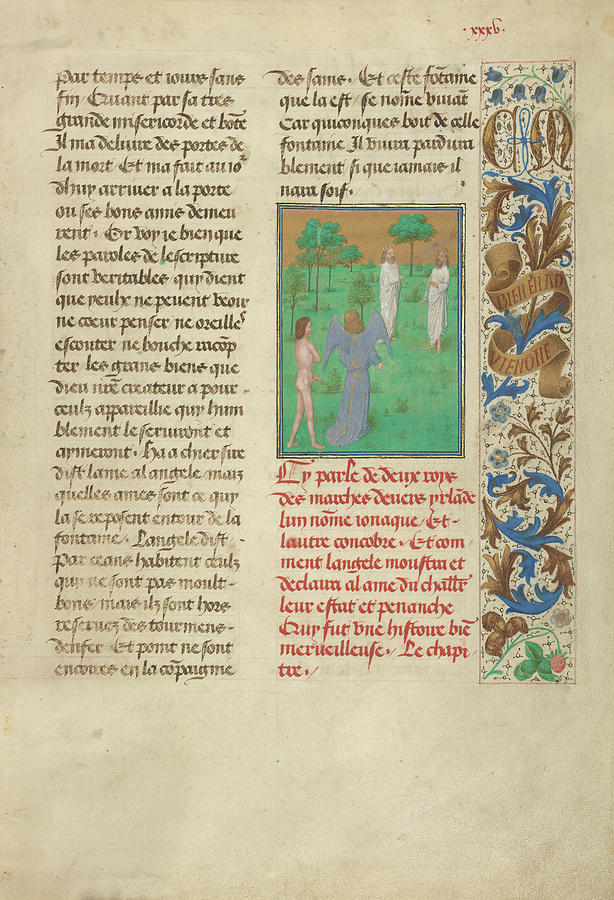 .xxxv.
par temps et iours sans
fin / Criant par sa tres
grande misericorde et bōte
Il ma delivre des portes de
la mort . Et ma fait au io2
dhuy arriver a la porte
ou ses bons amis demeu
rent . Or voy ie bien que
les paroles de lescripture
sont veritables quy dient
que yeulx ne peuent veoir
ne coeur penser ne oreille2
escouter ne bouche racōp
ter les grans biens que
dieu nr̄e createur a pour-
ceulz appareillie quy hum
blement le serviront et
aymeront . Ha a chier sire
dist lame al angele maiz
quelles ames sont ce quy
la se reposent entour de la
fontaine . Langele dist .
Par ceans habitent ceulz
quy ne sont pas moult-
bons mais ilz sont hors
reservez des tourmens-
denfer Et point ne sont
encores en la cōpaigme
des sains . Et ceste fōtaine
que la est se nōme viviāt
Car quiconques boit de celle
fontaine Il vivra pardura
blement si que iamais il
naura soif .
Cy parle de deux roys
des marches devers yrlāde
lun nōme ionaque Et-
lautre concobre . Et com
ment langele moustra et
declaira al ame du challr̄
leur estat et penanche
Quy fut vne histoire biē
merveilleuse . Le chapi
tre .
CM
BIEN EN AD
VIENGNE